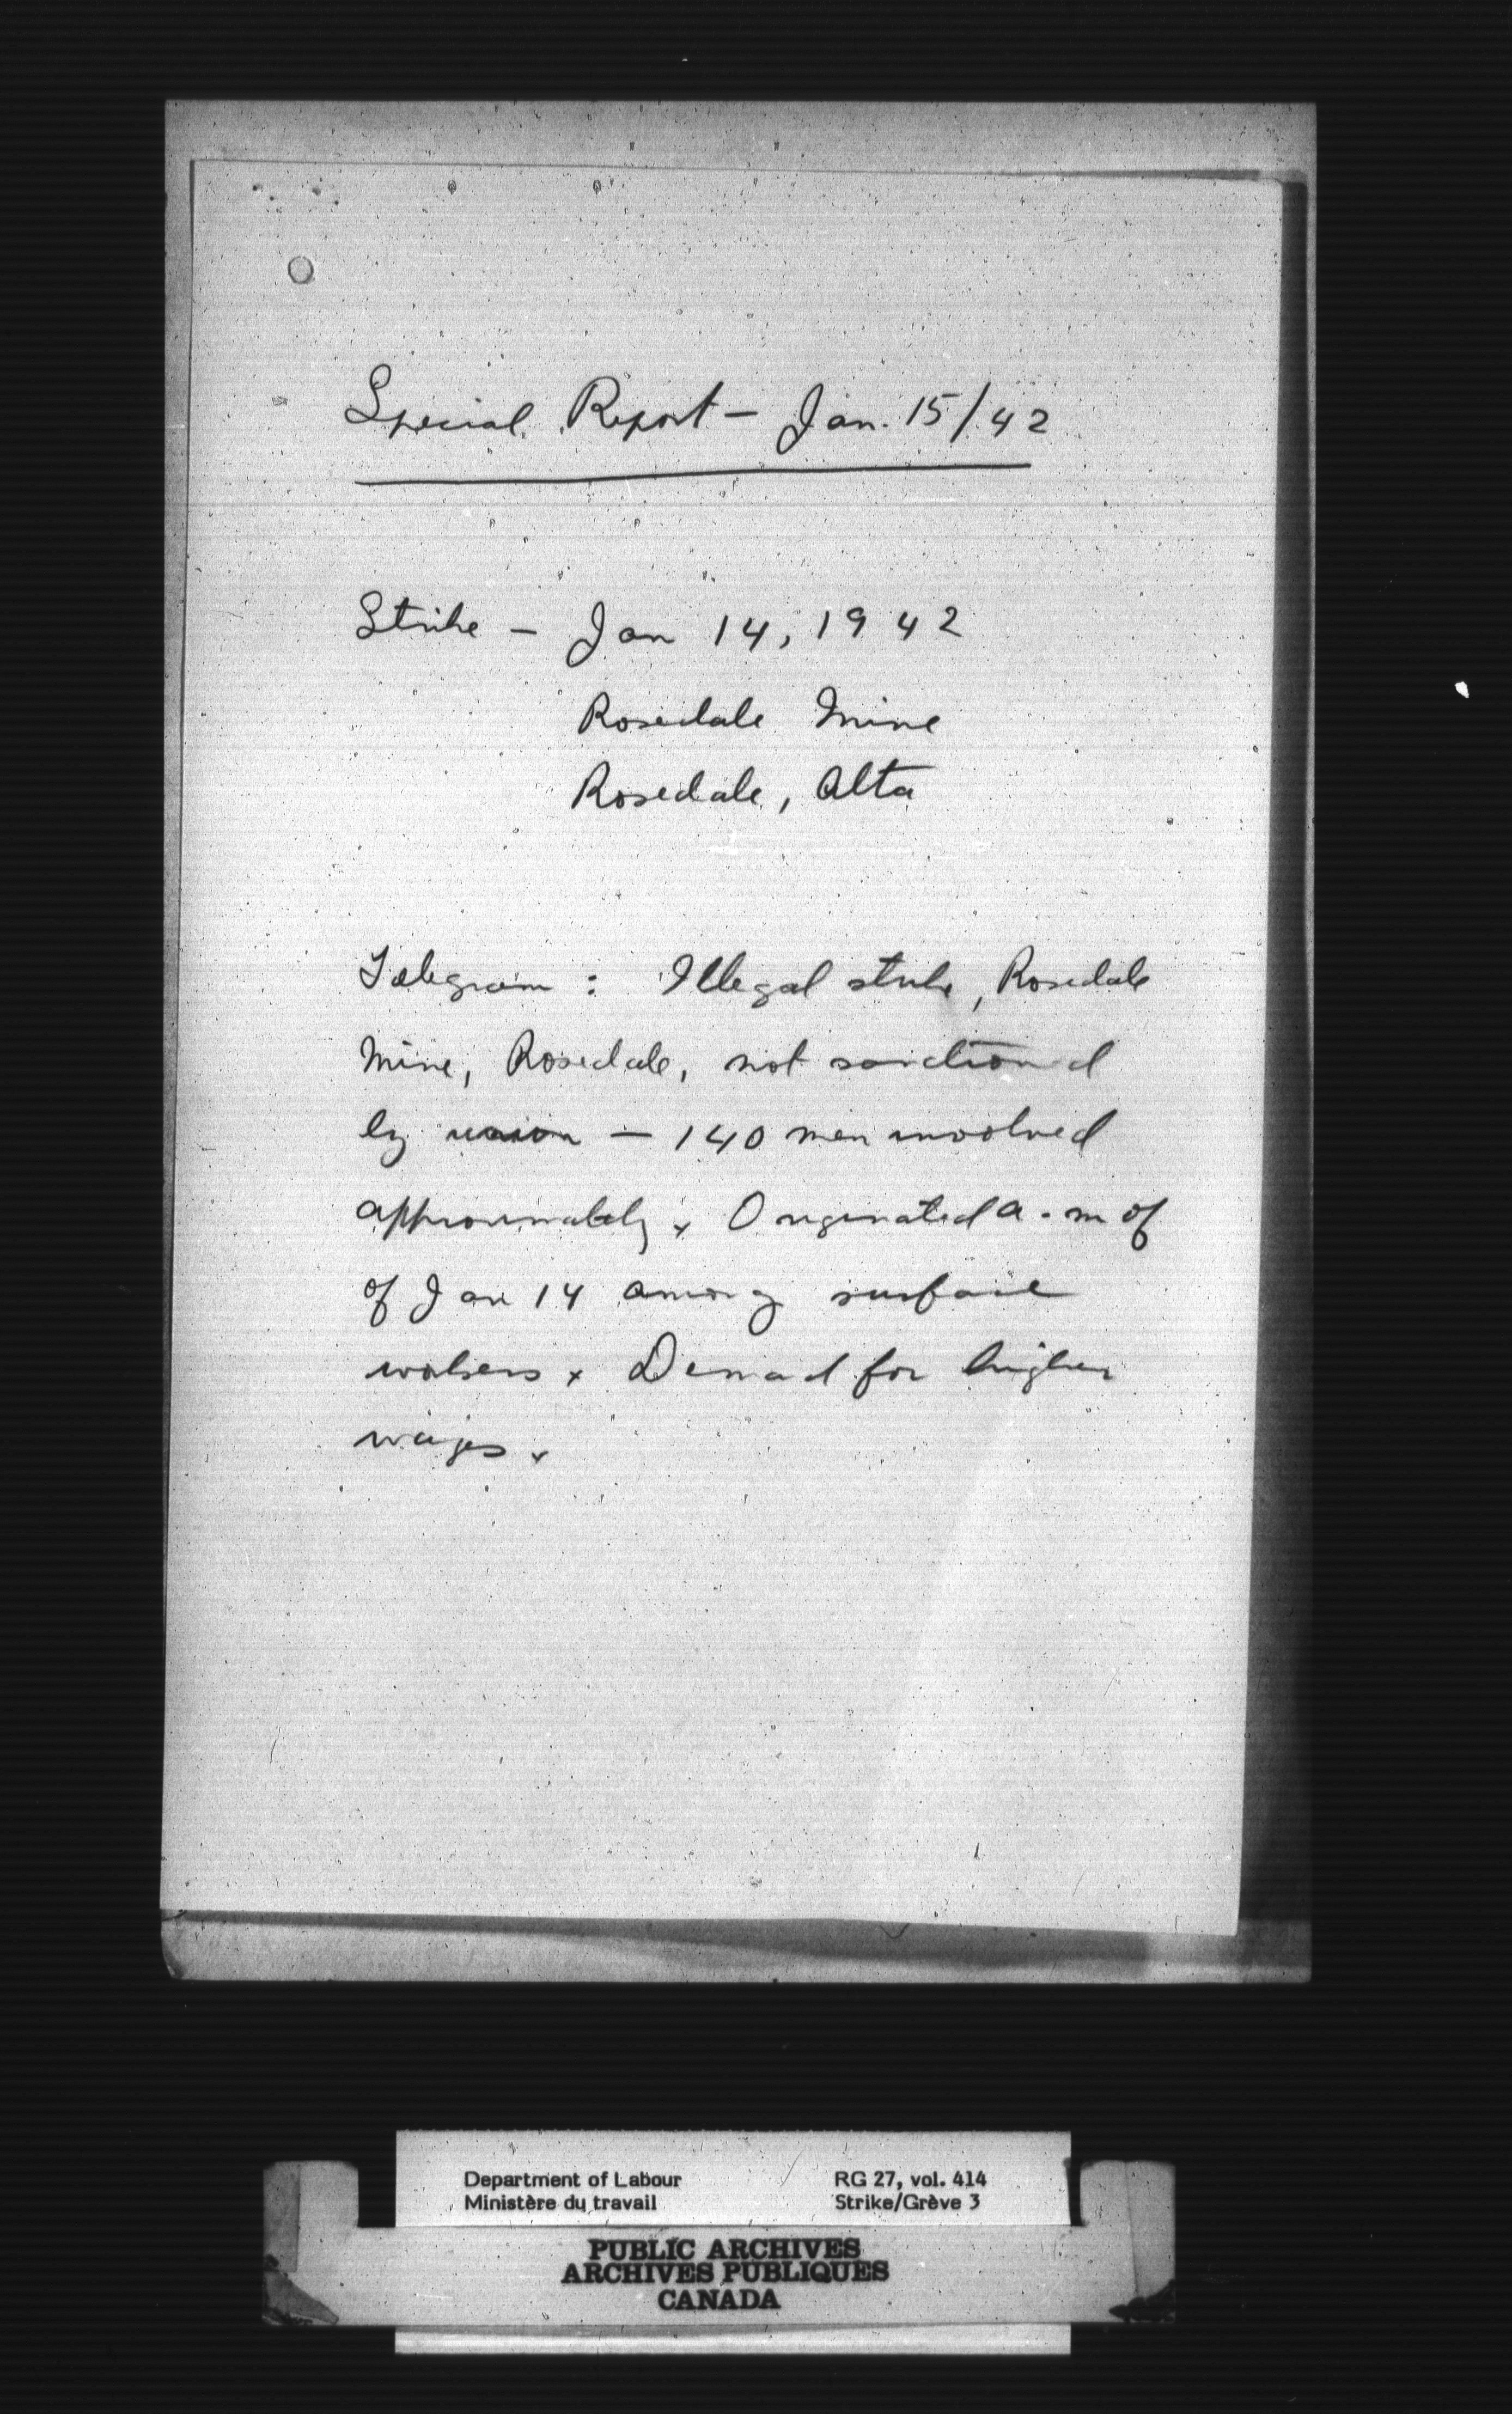 Special Report – Jan. 15/42
Strike – Jan 14, 1942
Rosedale Mine
Rosedale, Alta
Telegram : Illegal strike, Rosedale
Mine, Rosedale, not sanctioned
by union – 140 men involved
approximately x Originated a.m of
of Jan 14 among surface
workers x Demand for higher
wages x
Department of Labour RG 27, vol. 414
Ministère du travail Strike/Grève 3
PUBLIC ARCHIVES
ARCHIVES PUBLIQUES
CANADA